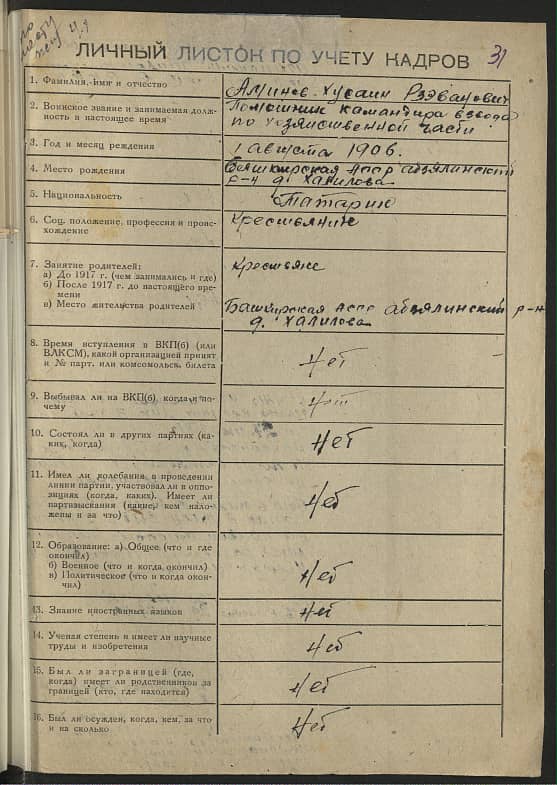 31
ЛИЧНЫЙ ЛИСТОК ПО УЧЕТУ КАДРОВ
1. Фамилия, имя и отчество
Аминов Хусаин Рэзванович
2. Воинское звание и занимаемая долж-
ность в настоящее время
Помошник камантира взвода
по хозяйственной части
3. Год и месяц рождения
1 августа 1906.
4. Место рождения
Башкирская АССР абзялинский
р-н д. Халилова
5. Национальность
Татарин
6. Соц. положение, профессия и проис-
хождение
Крестьянин
7. Занятие родителей:
а) До 1917 г. (чем занимались и где)
б) После 1917 г. до настоящего вре-
мени
в) Место жительства родителей
Крестьяне
Башкирская АССР абзялинский р-н
д. Халилова
8. Время вступления в ВКП(б) (или
ВЛКСМ), какой организацией принят
и № парт. или комсомольск. билета
Нет
9. Выбывал ли из ВКП(б), когда и по-
чему
Нет
10. Состоял ли в других партиях (ка-
ких, когда)
Нет
11. Имел ли колебания в проведении
линии партии, участвовал ли в оппо-
зициях (когда, каких). Имеет ли
партвзыскания (какие, кем нало-
жены и за что)
Нет
12. Образование: а) Общее (что и где
окончил)
б) Военное (что и когда окончил)
в) Политическое (что и когда окон-
чил)
Нет
13. Знание иностранных языков
Нет
14. Ученая степень и имеет ли научные
труды и изобретения
Нет
15. Был ли заграницей (где,
когда) имеет ли родственников за
границей (кто, где находится)
Нет
16. Был ли осужден, когда, кем, за что
и на сколько
Нет